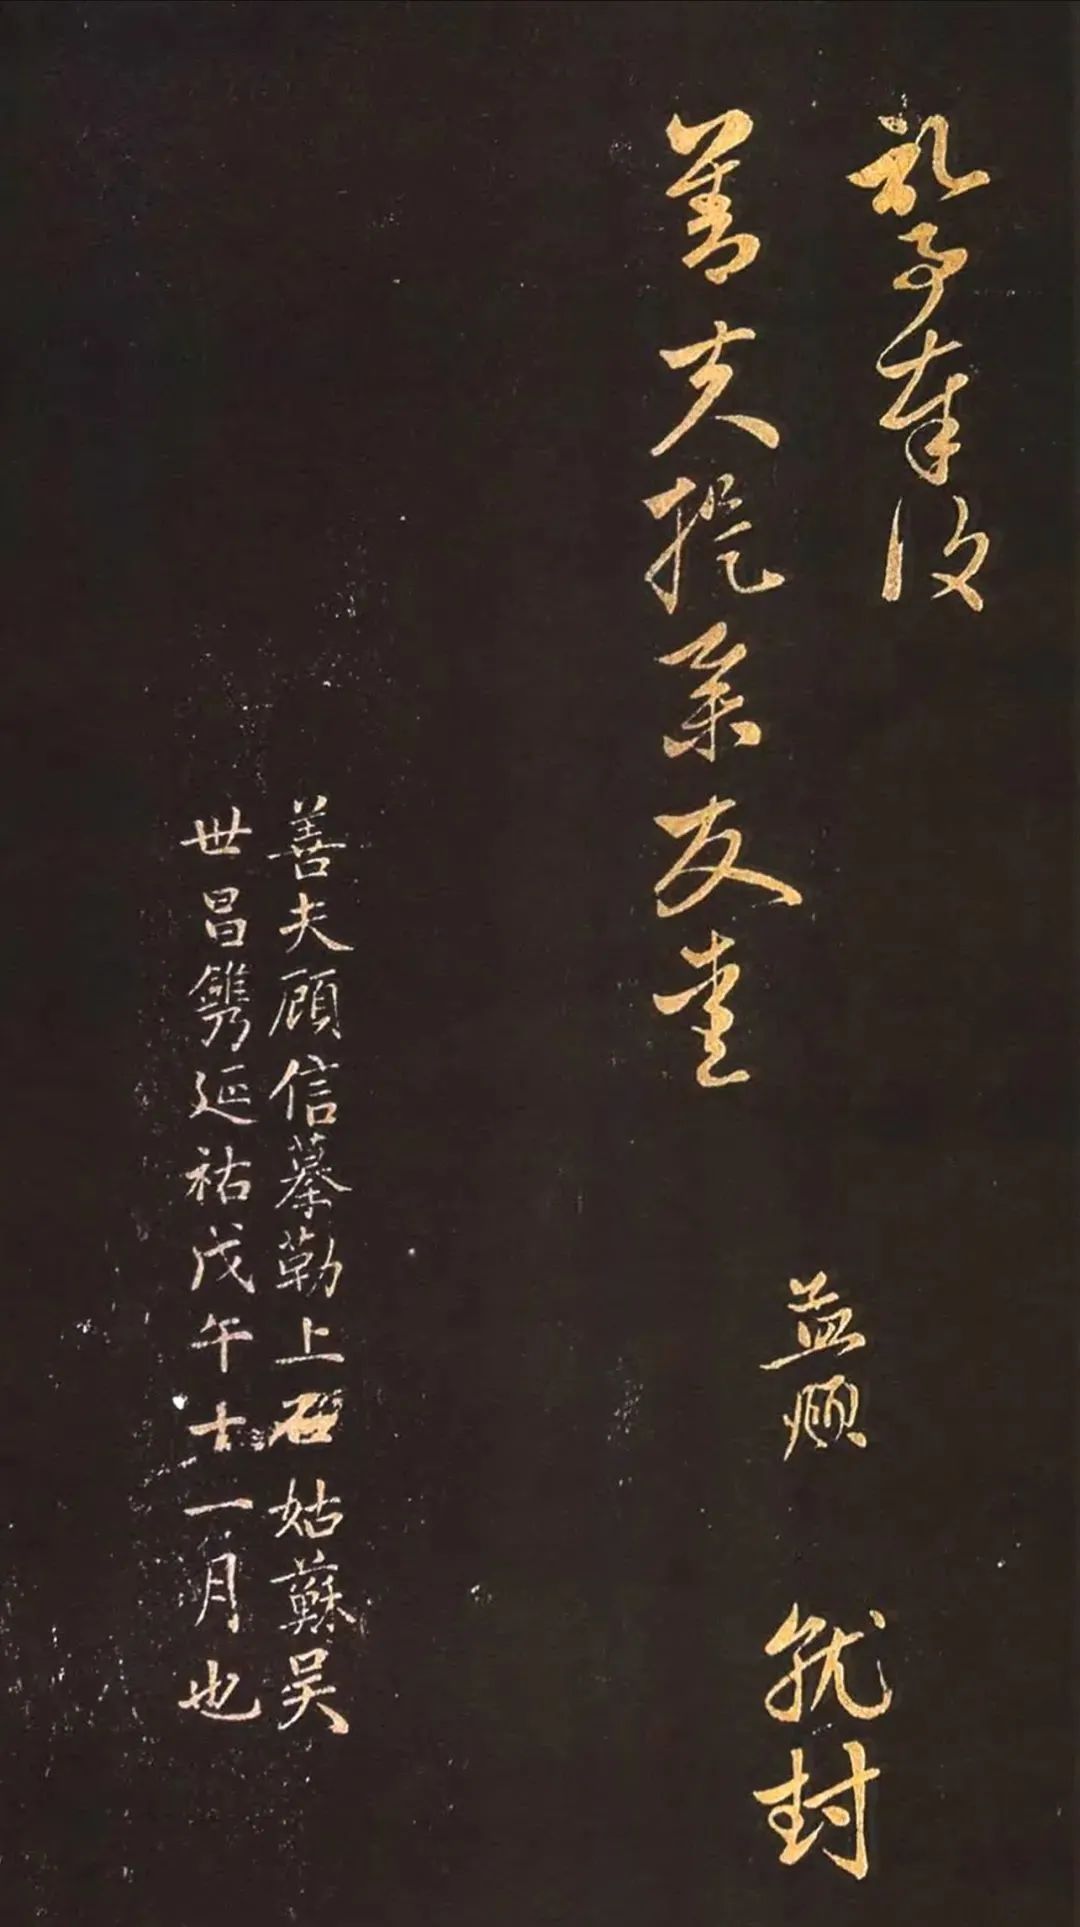 奉復
善夫提親友
孟頫 就封
善夫顧信摹勒上石姑蘇吳
世昌鐫延祐戊午十一月也